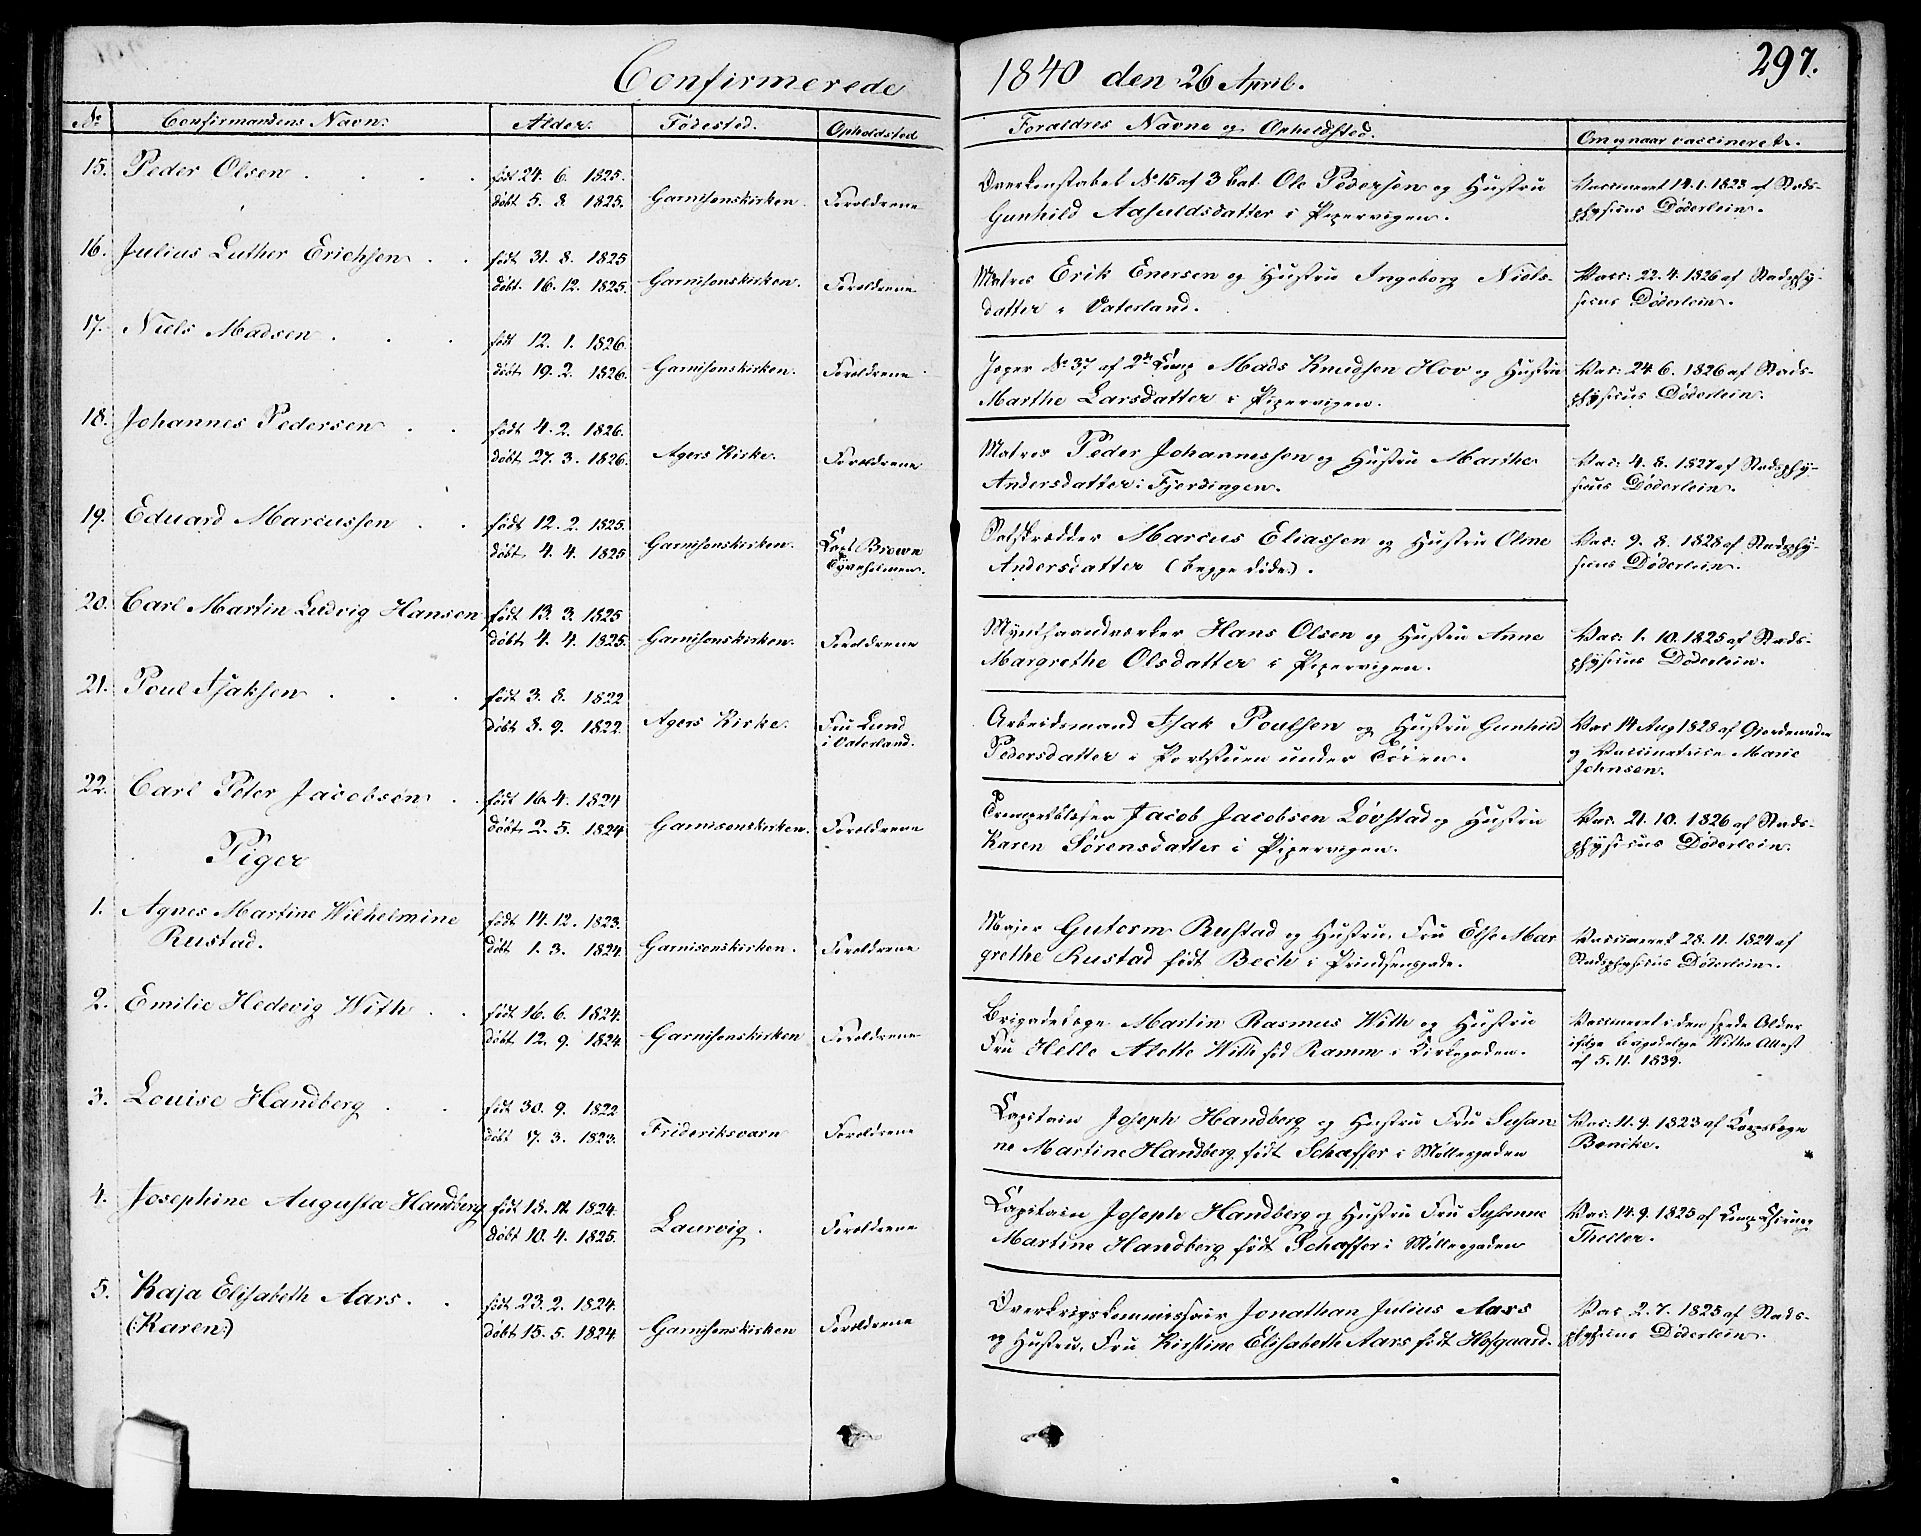 Confirmerede 1840 den 26 April.
297.
No Confirmandens Navn. Alder. Fødested. Opholdssted Foraldres Navne og Opholdssted. Om og naar vaccineret.
15. Peder Olsen . . . .
født 24. 6. 1825.
døbt 5. 8. 1825. Garnisonskirken. Forældrene
No 15 af 3 Bat. Ole Pedersen og Hustru
Gunhild Aasuldsdatter i Pipervigen.
Vaccineret 14. 1. 1823 af Stads-
physicus Døderlein.
16. Julius Luther Erichsen . .
født 31. 8. 1825
døbt 16. 12. 1825. Garnisonskirken. Forældrene
Matros Erik Enersen og Hustru Ingeborg Niels-
datter i Vaterland.
Vacc: 22. 4. 1826 af Stadsphy-
sicus Døderlein.
17. Niels Madsen . . .
født 12. 1. 1826.
døbt 19. 2. 1826. Garnisonskirken. Forældrene
Jæger No 37 af 2den Komp Mads Knudsen Hov og Hustru
Marthe Larsdatter i Pipervigen.
Vac: 24. 6. 1826 af Stads-
physicus Døderlein.
18. Johannes Pedersen . .
født 4. 2. 1826.
døbt 27. 3. 1826. Agers Kirke. Forældrene
Matros Peder Johannessen og Hustru Marthe
Andersdatter i Fjerdingen.
Vac: 4. 8. 1827 af Stadsphy-
sicus Døderlein.
19. Eduard Marcussen . .
født 12. 2. 1825.
døbt 4. 4. 1825 Garnisonskirken. Capt Brown
Tyveholmen.
Marcus Eliassen og Hustru Oline
Andersdatter (begge døde).
Vac: 9. 8. 1828 af Stadsphy-
sicus Døderlein.
20. Carl Martin Ludvig Hansen
født 13. 3. 1825
døbt 4. 4. 1825. Garnisonskirken. Forældrene
Mynthaandværker Hans Olsen og Hustru Anne
Margrethe Olsdatter i Pipervigen.
Vac: 1. 10. 1825 af Stads-
physicus Døderlein.
21. Poul Isaksen . . .
født 3. 8. 1822
døbt 8. 9. 1822. Agers Kirke. Fru Lund
i Vaterland.
Arbeidsmand Isak Poulsen og Hustru Gunhild
Pedersdatter i Portstuen under Tøien.
Vac 14 Aug 1828 af Gjordemoder
og Vaccinatrice Marie
Johnsen.
22. Carl Peter Jacobsen . .
født 16. 4. 1824
døbt 2. 5. 1824 Garnisonskirken. Forældrene
Trompetblæser Jacob Jacobsen Løvstad og Hustru
Karen Sørensdatter i Pipervigen.
Vac. 21. 10. 1826 af Stads-
physicus Døderlein.
Piger
1. Agnes Martine Wilhelmine
Rustad.
født 14. 12. 1823.
døbt 1. 3. 1824. Garnisonskirken. Forældrene
Major Gutorm Rustad og Hustru Fru Else Mar
grethe Rustad født Bech i Prindsensgade.
Vaccineret 28. 11. 1824 af
Stadsphysicus Døderlein.
2. Emilie Hedevig With . .
født 16. 6. 1824.
døbt 12. 9. 1824. Garnisonskirken Forældrene
Brigadelæge Martin Rasmus With og Hustru
Fru Helle Alette With fød Ramm i Kirkegaden.
Vaccineret i den spæde Alder
ifølge Brigadelæge Withs Attest
af 5. 11. 1839.
3. Louise Handberg . .
født 30. 9. 1822
døbt 7. 3. 1823. Frideriksværn Forældrene
Capitain Joseph Handberg og Hustru Fru Susan
ne Martine Handberg født Schæffer i Møllergaden
Vac: 11. 4. 1823 af Korpslæge
Bencke.
4. Josephine Augusta Handberg
født 18. 11. 1824.
døbt 10. 4. 1825. Laurvig. Forældrene
Capitain Joseph Handberg og Hustru Fru Susanne
Martine Handberg født Schæffer i Møllergaden
Vac: 14. 9. 1825 af
Theller.
5. Kaja Elisabeth Aars . .
(Karen)
født 23. 2. 1824.
døbt 15. 5. 1824. Garnisonskirken Forældrene
Overkrigskommissair Jonathan Julius Aars
og Hustru, Fru Kirstine Elisabeth Aars født Hofgaard.
Vac. 2. 7. 1825 af Stads-
physicus Døderlein.